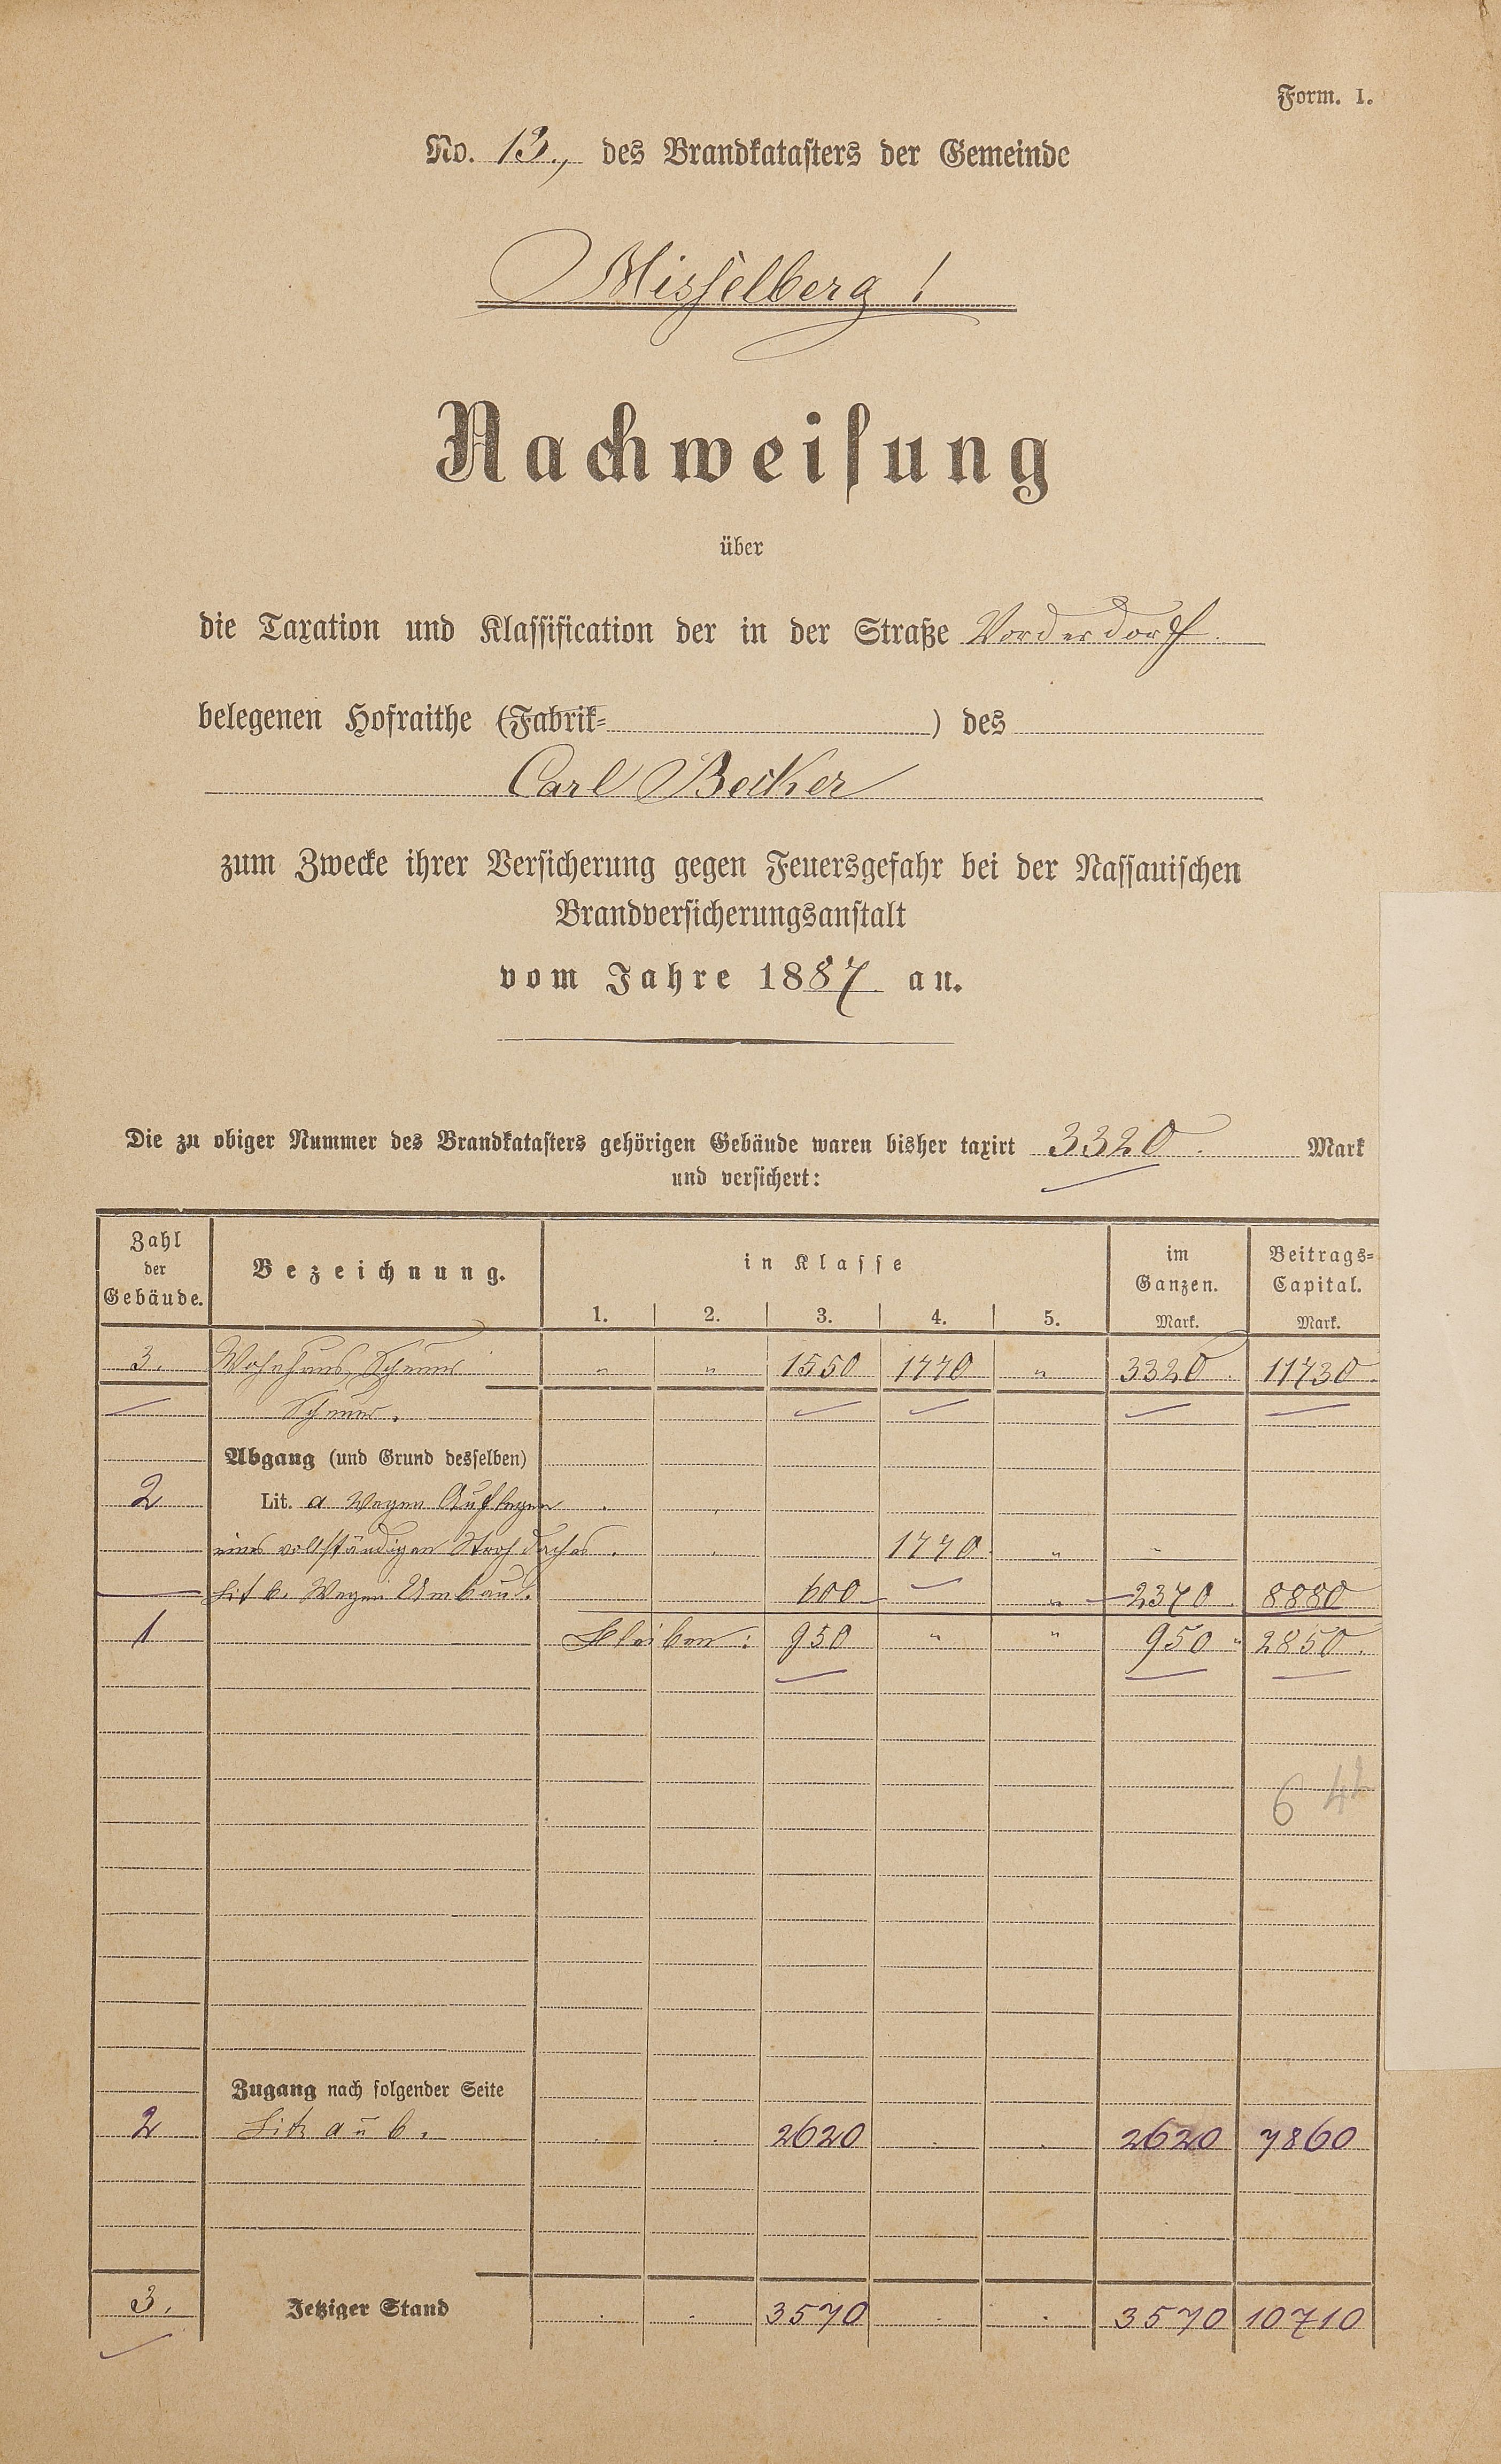 Form. I.
No. 13., des Brandkatasters der Gemeinde
Misselberg!
Nachweisung
über
die Taxation und Klassification der in der Straße Vorderdorf.
belegenen Hofraithe (Fabrik= ) des
Carl Becker
zum Zwecke ihrer Versicherung gegen Feuersgefahr bei der Nassauischen
Brandversicherungsanstalt
vom Jahre 1887 an.
Die zu obiger Nummer des Brandkatasters gehörigen Gebäude waren bisher taxirt 3320. Mark
und versichert:
Zahl der Gebäude. Bezeichnung. in Klasse im Ganzen. Beitrags=Capital.
1. 2. 3. 4. 5. Mark. Mark.
3. Wohnhaus, Scheuer " " 1550 1770 " 3320. 11730.
Scheuer.
Abgang (und Grund desselben)
2 Lit. a Wegen Auflegen
eines vollständigen Strohdaches. 1770. "
Lit b. Wegen Umbaus. 600 " 2370. 8880
1 Bleiben: 950 " " 950 " 2850.
6 42
Zugang nach folgender Seite
2 Lit. a u b. . . 2620 . . 2620 7860
3. Jetziger Stand . . 3570 . . 3570 10710